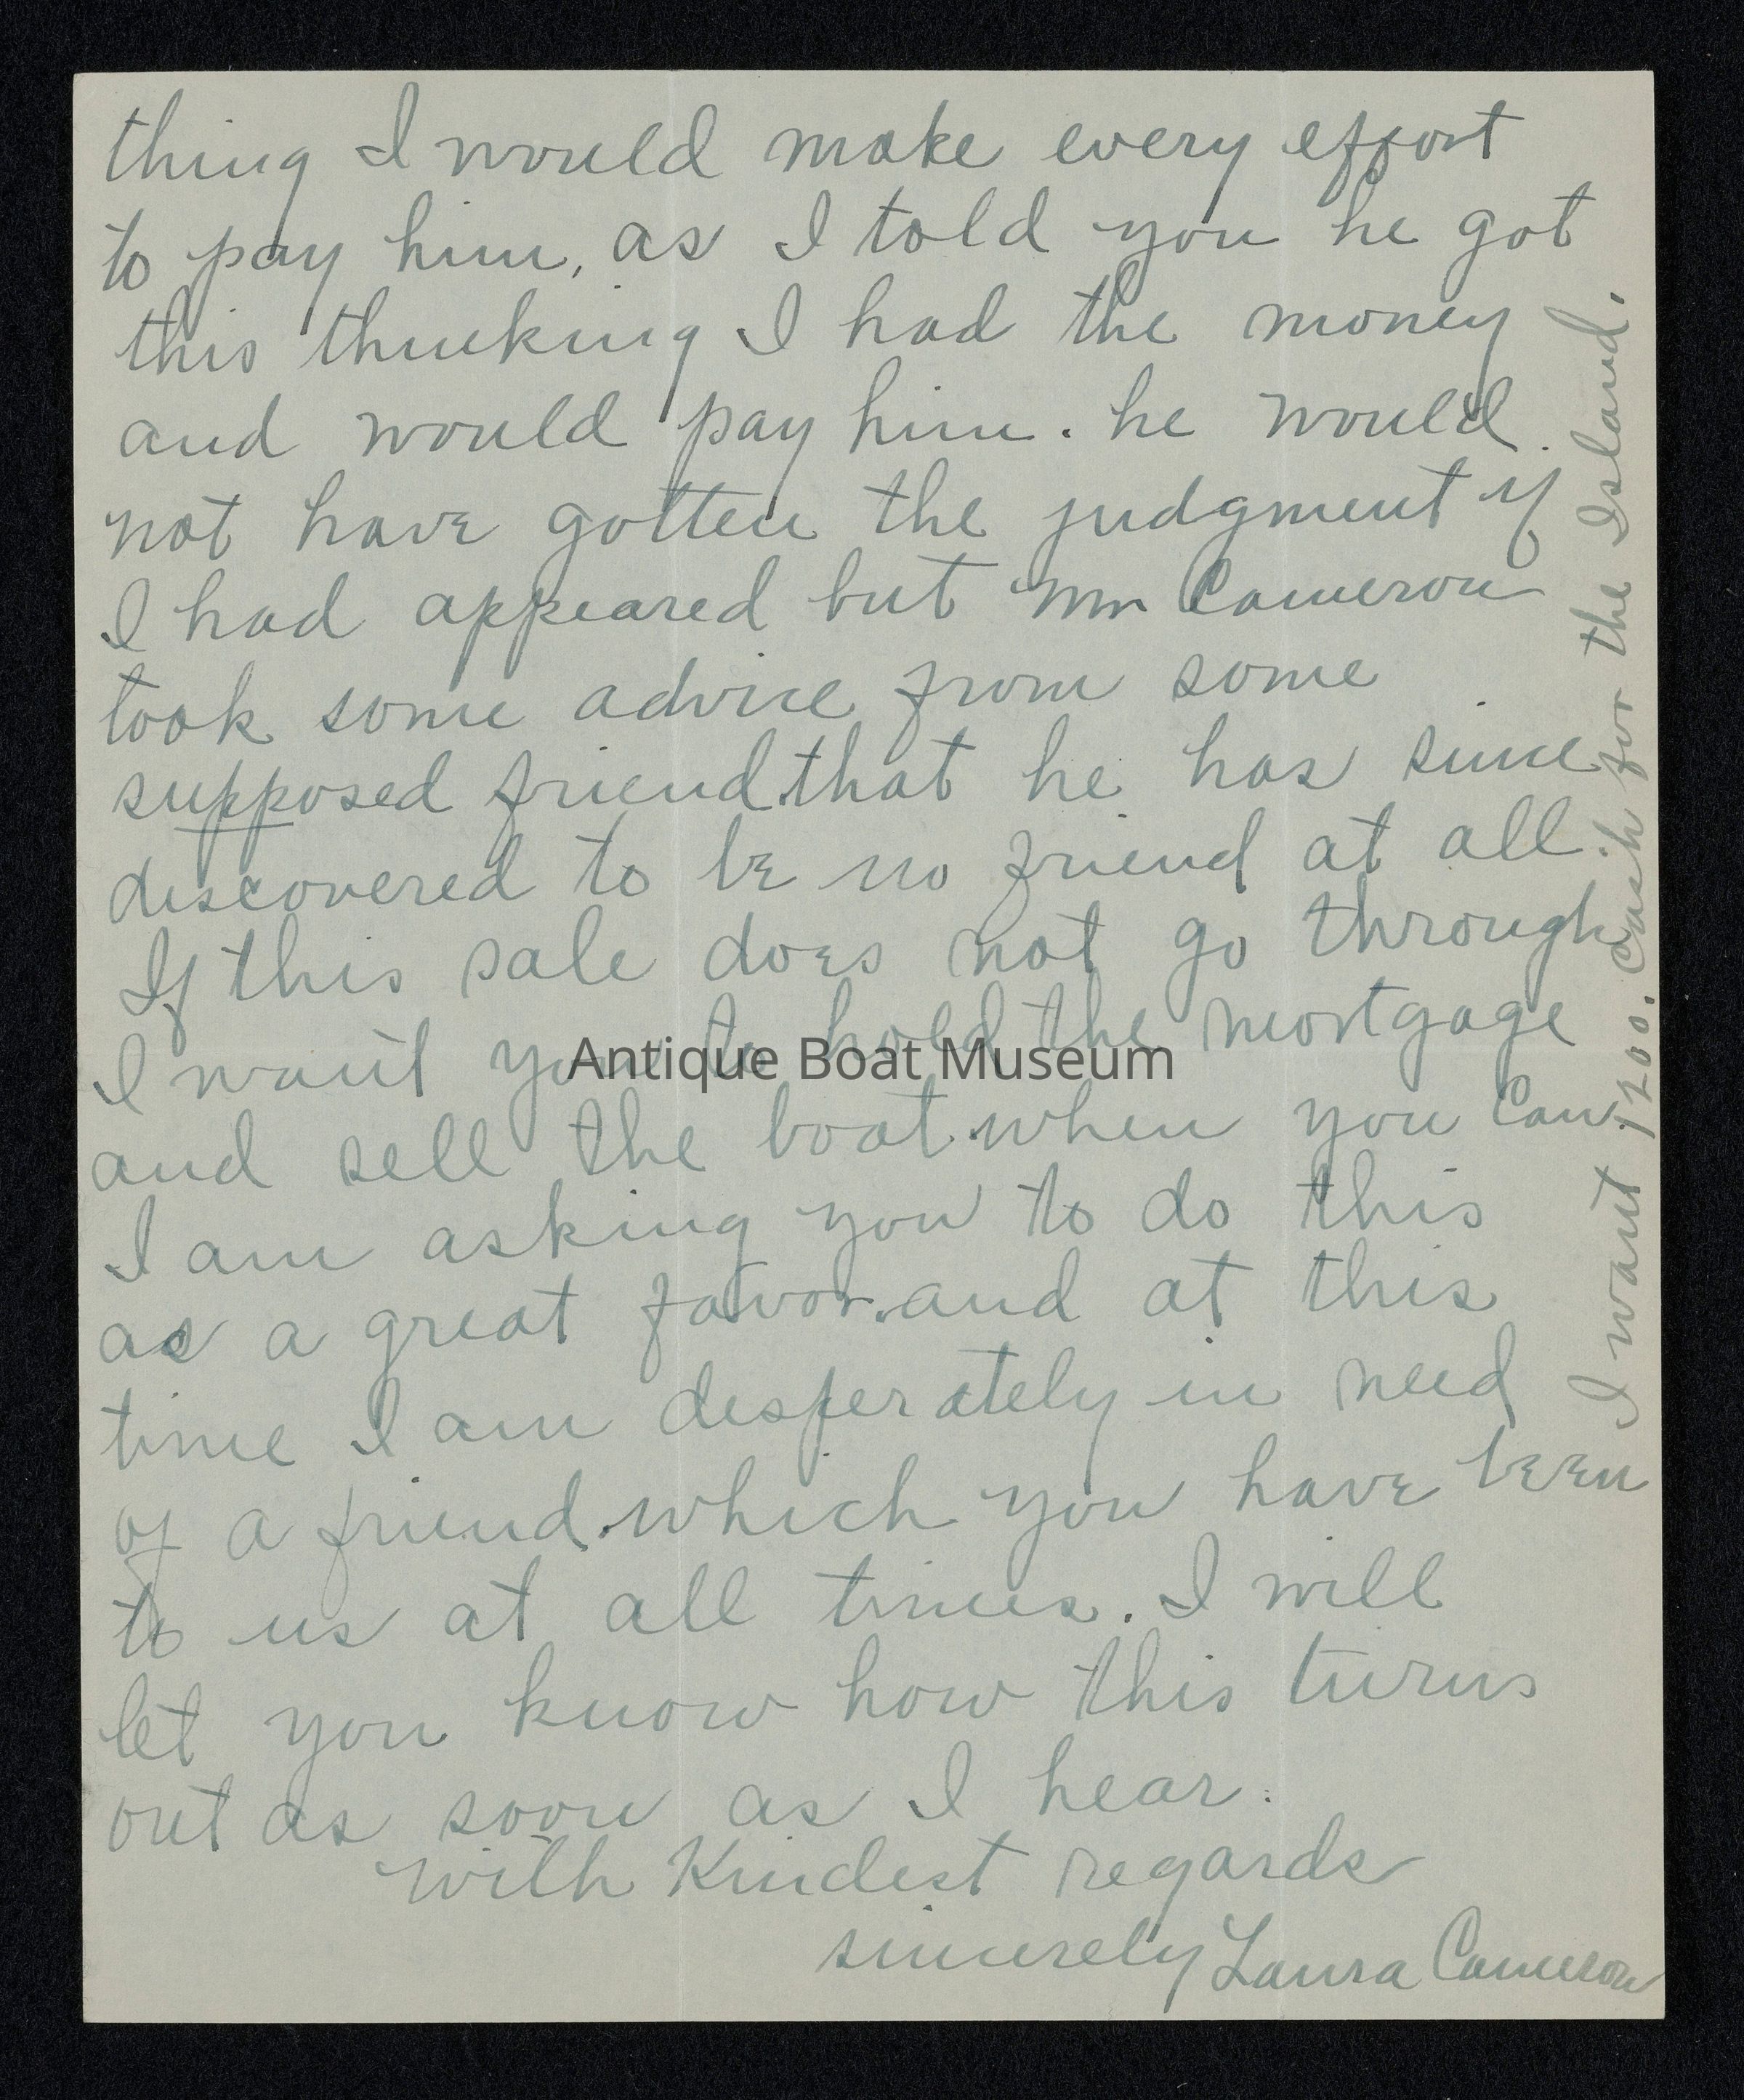 thing I would make every effort
to pay him, as I told you he got
this thinking I had the money
and would pay him. he would
not have gotten the judgment if
I had appeared but Mr Cameron
took some advice from some
supposed friend. that he has since
discovered to be no friend at all.
If this sale does not go through
I want you to hold the mortgage
and sell the boat. when you can.
I am asking you to do this
as a great favor. and at this
time I am desperately in need
of a friend. which you have been
to us at all times. I will
let you know how this turns
out as soon as I hear.
with Kindest regards
sincerely Laura Cameron
I want 1200. cash for the Island.
Antique Boat Museum